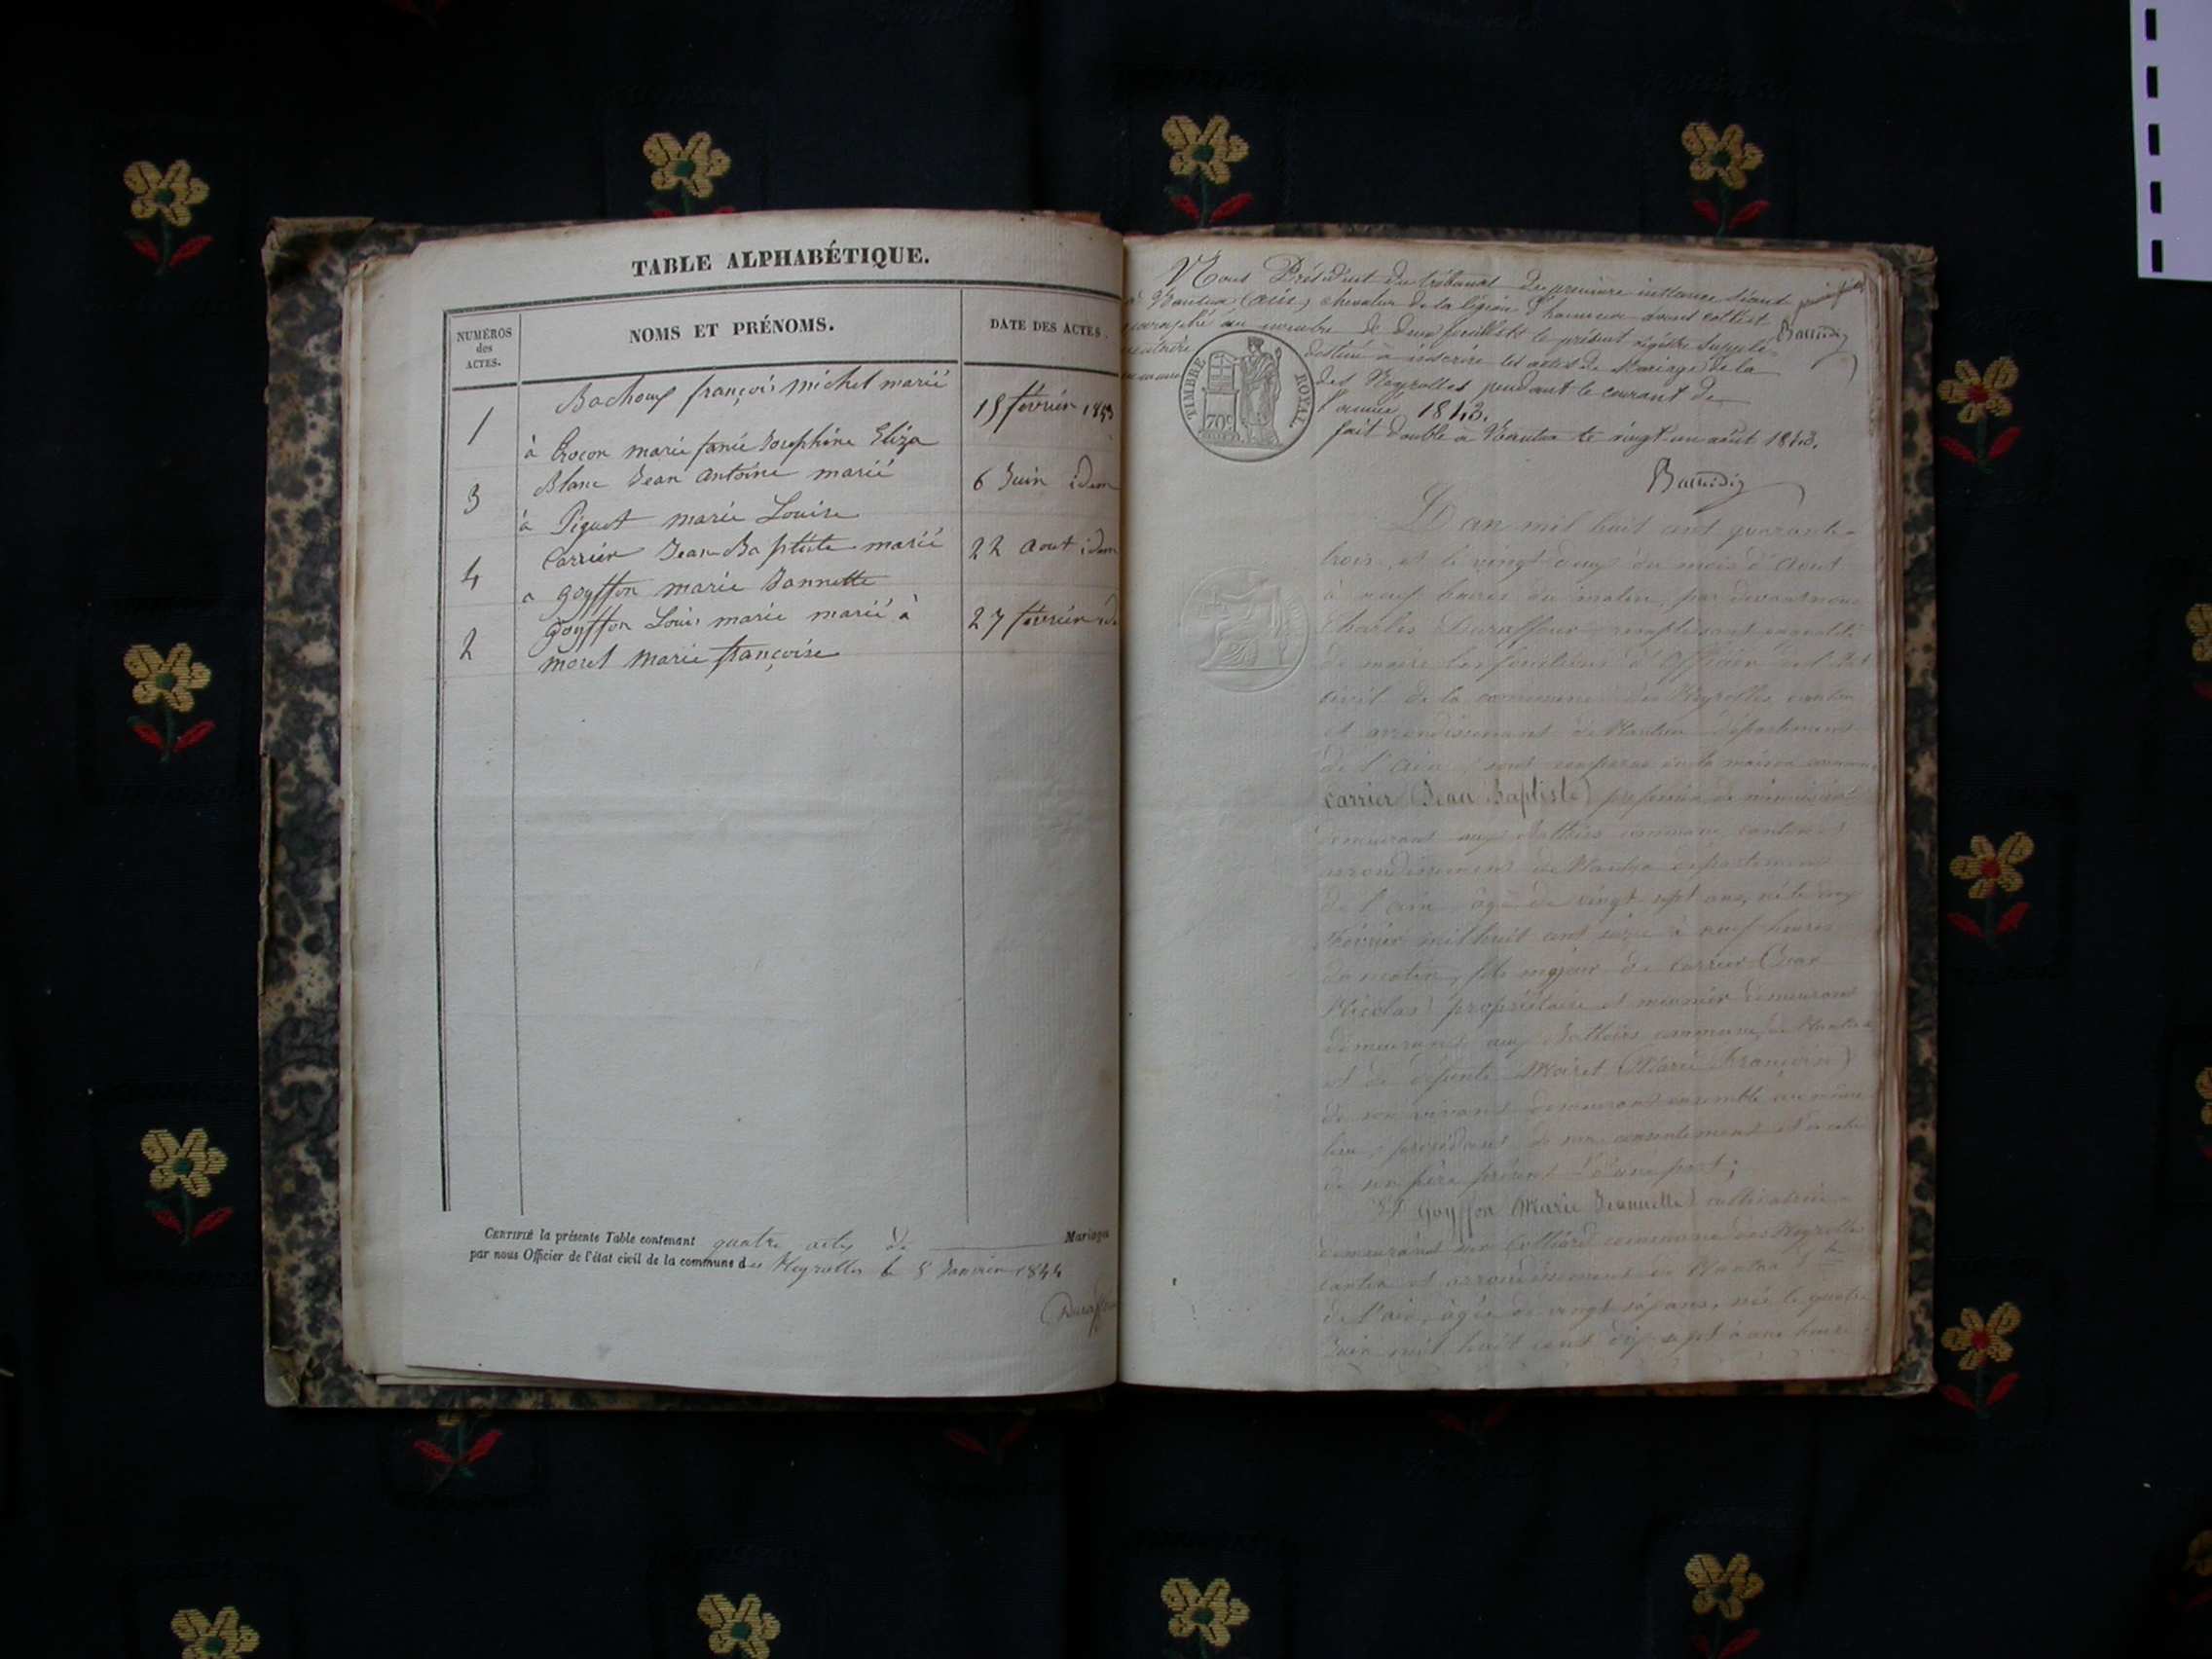 TABLE ALPHABÉTIQUE.
NUMÉROS
des
ACTES.
NOMS ET PRÉNOMS.
DATE DES ACTES.
françois michel marié
1
15 février 1843
à marie Josephine Eliza
Blanc Jean Antoine marié
3
6 Juin idem
à Piquet marie Louise
Carrier Jean Baptiste marié
4
22 Aout idem
a goyffon marie Jannette
goyffon Louis marie marié à
2
27 février
morel Marie françoise
CERTIFIÉ la présente Table contenant quatre actes de Mariages
par nous Officier de l'état civil de la commune des Neyrolles le 5 Janvier 1844
Nous Président du tribunal de première instance séant
à Nantua (Ain) chevalier de la légion d'honneur avons cotté et
paraphé au nombre de deux feuillets le présent régistre supplé-
destiné à inscrire les actes de Mariage de la
des Neyrolles pendant le courant de
l'année 1843.
fait double à Nantua le vingt un août 1843.
TIMBRE ROYAL
70c
L'an mil huit cent quarante-
trois, et le vingt deux du mois d'Aout
à neuf heures du matin, par devant nous
Charles Duraffour remplissant en qualité
de maire les fonctions d'Officier de l'Etat
civil de la commune des Neyrolles canton
et arrondissement de Nantua département
de l'Ain, sont comparus en la maison commune
Carrier (Jean Baptiste) profession de
demeurant aux Battoirs commune, canton et
arrondissement de Nantua département
de l'Ain, âgé de vingt sept ans, né le
Février mil huit cent seize à neuf heures
du matin, fils majeur de Carrier (Jean
Nicolas) propriétaire et meunier demeurant
demeurant aux Battoirs commune de Nantua
et de défunte Moiret (Marie Françoise)
de son vivant demeurant ensemble au même
lieu, procédant de son consentement et de celui
de son père présent d'une part;
Et Goyffon (Marie Jeannette) cultivatrice
demeurant commune des Neyrolles
canton et arrondissement de Nantua
de l'Ain, âgée de vingt six ans, née le quatre
Juin mil huit cent dix sept à une heure